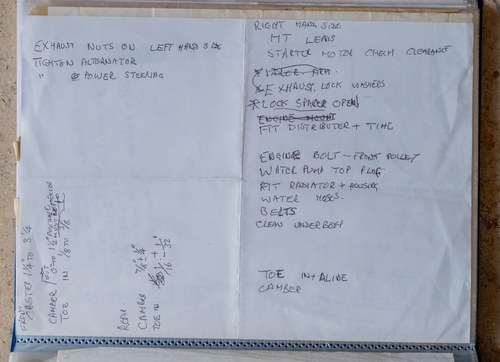 EXHAUST NUTS ON LEFT HAND SIDE
TIGHTEN ALTERNATOR
" POWER STEERING
RIGHT HAND SIDE
HT LEADS
STARTER MOTOR CHECK CLEARANCE
* IDLER ARM.
* EXHAUST LOCK WASHERS
* LOCK SPACER OPEN
ENGINE MOUNT
FIT DISTRIBUTER + TIME
ENGINE BOLT - FRONT PULLEY
WATER PUMP TOP PLUG
FIT RADIATOR + HOUSING
WATER HOSES
BELTS
CLEAN UNDERBODY
TOE IN + ALINE
CAMBER
FRONT
CASTER 1 1/4° TO 3 1/4
CAMBER
TOE IN 1/8 TO 3/8
REAR.
CAMBER 7/8 ± 3/4°
TOE IN